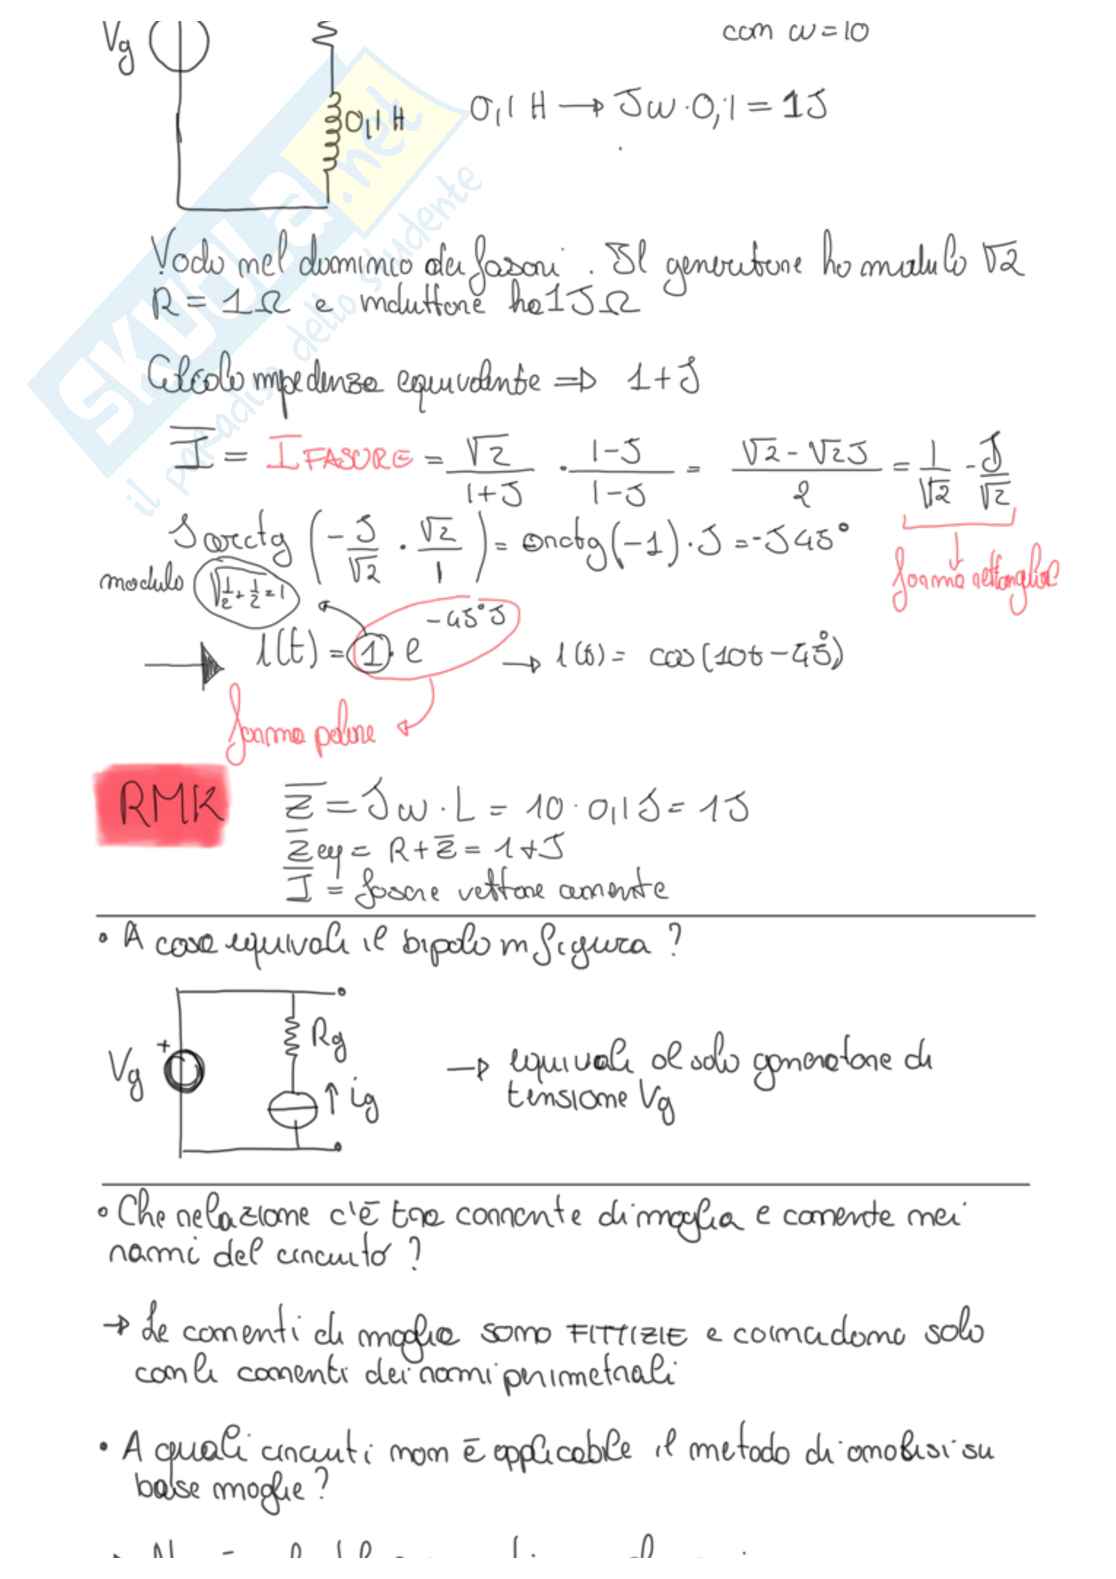 Vg
com ω=10
0,1 H
0,1 H → Jω·0,1 = 1J
SKUOLA.net
il paradiso dello studente
Vado nel dominio dei fasori. Il generatore ha modulo √2
R = 1Ω e induttore ha 1JΩ
Calcolo impedenza equivalente ⇒ 1+J
I = I FASORE = √2/(1+J) · (1-J)/(1-J) = (√2-√2J)/2 = 1/√2 - J/√2
J arctg (-J/√2 · √2/1) = arctg(-1)·J = -J45°
forma rettangolare
modulo √(1/2+1/2) = 1
i(t) = 1·e^(-45°J) → i(t) = cos(10t-45°)
forma polare
RMK
Z = Jω·L = 10·0,1J = 1J
Zeq = R+Z = 1+J
I = fasore vettore corrente
• A cosa equivale il bipolo in figura?
Rg
+
Vg
ig
→ equivale al solo generatore di
tensione Vg
• Che relazione c'è tra corrente di maglia e corrente nei
rami del circuito?
→ Le correnti di maglia sono FITTIZIE e coincidono solo
con le correnti dei rami perimetrali
• A quali circuiti non è applicabile il metodo di analisi su
base maglie?